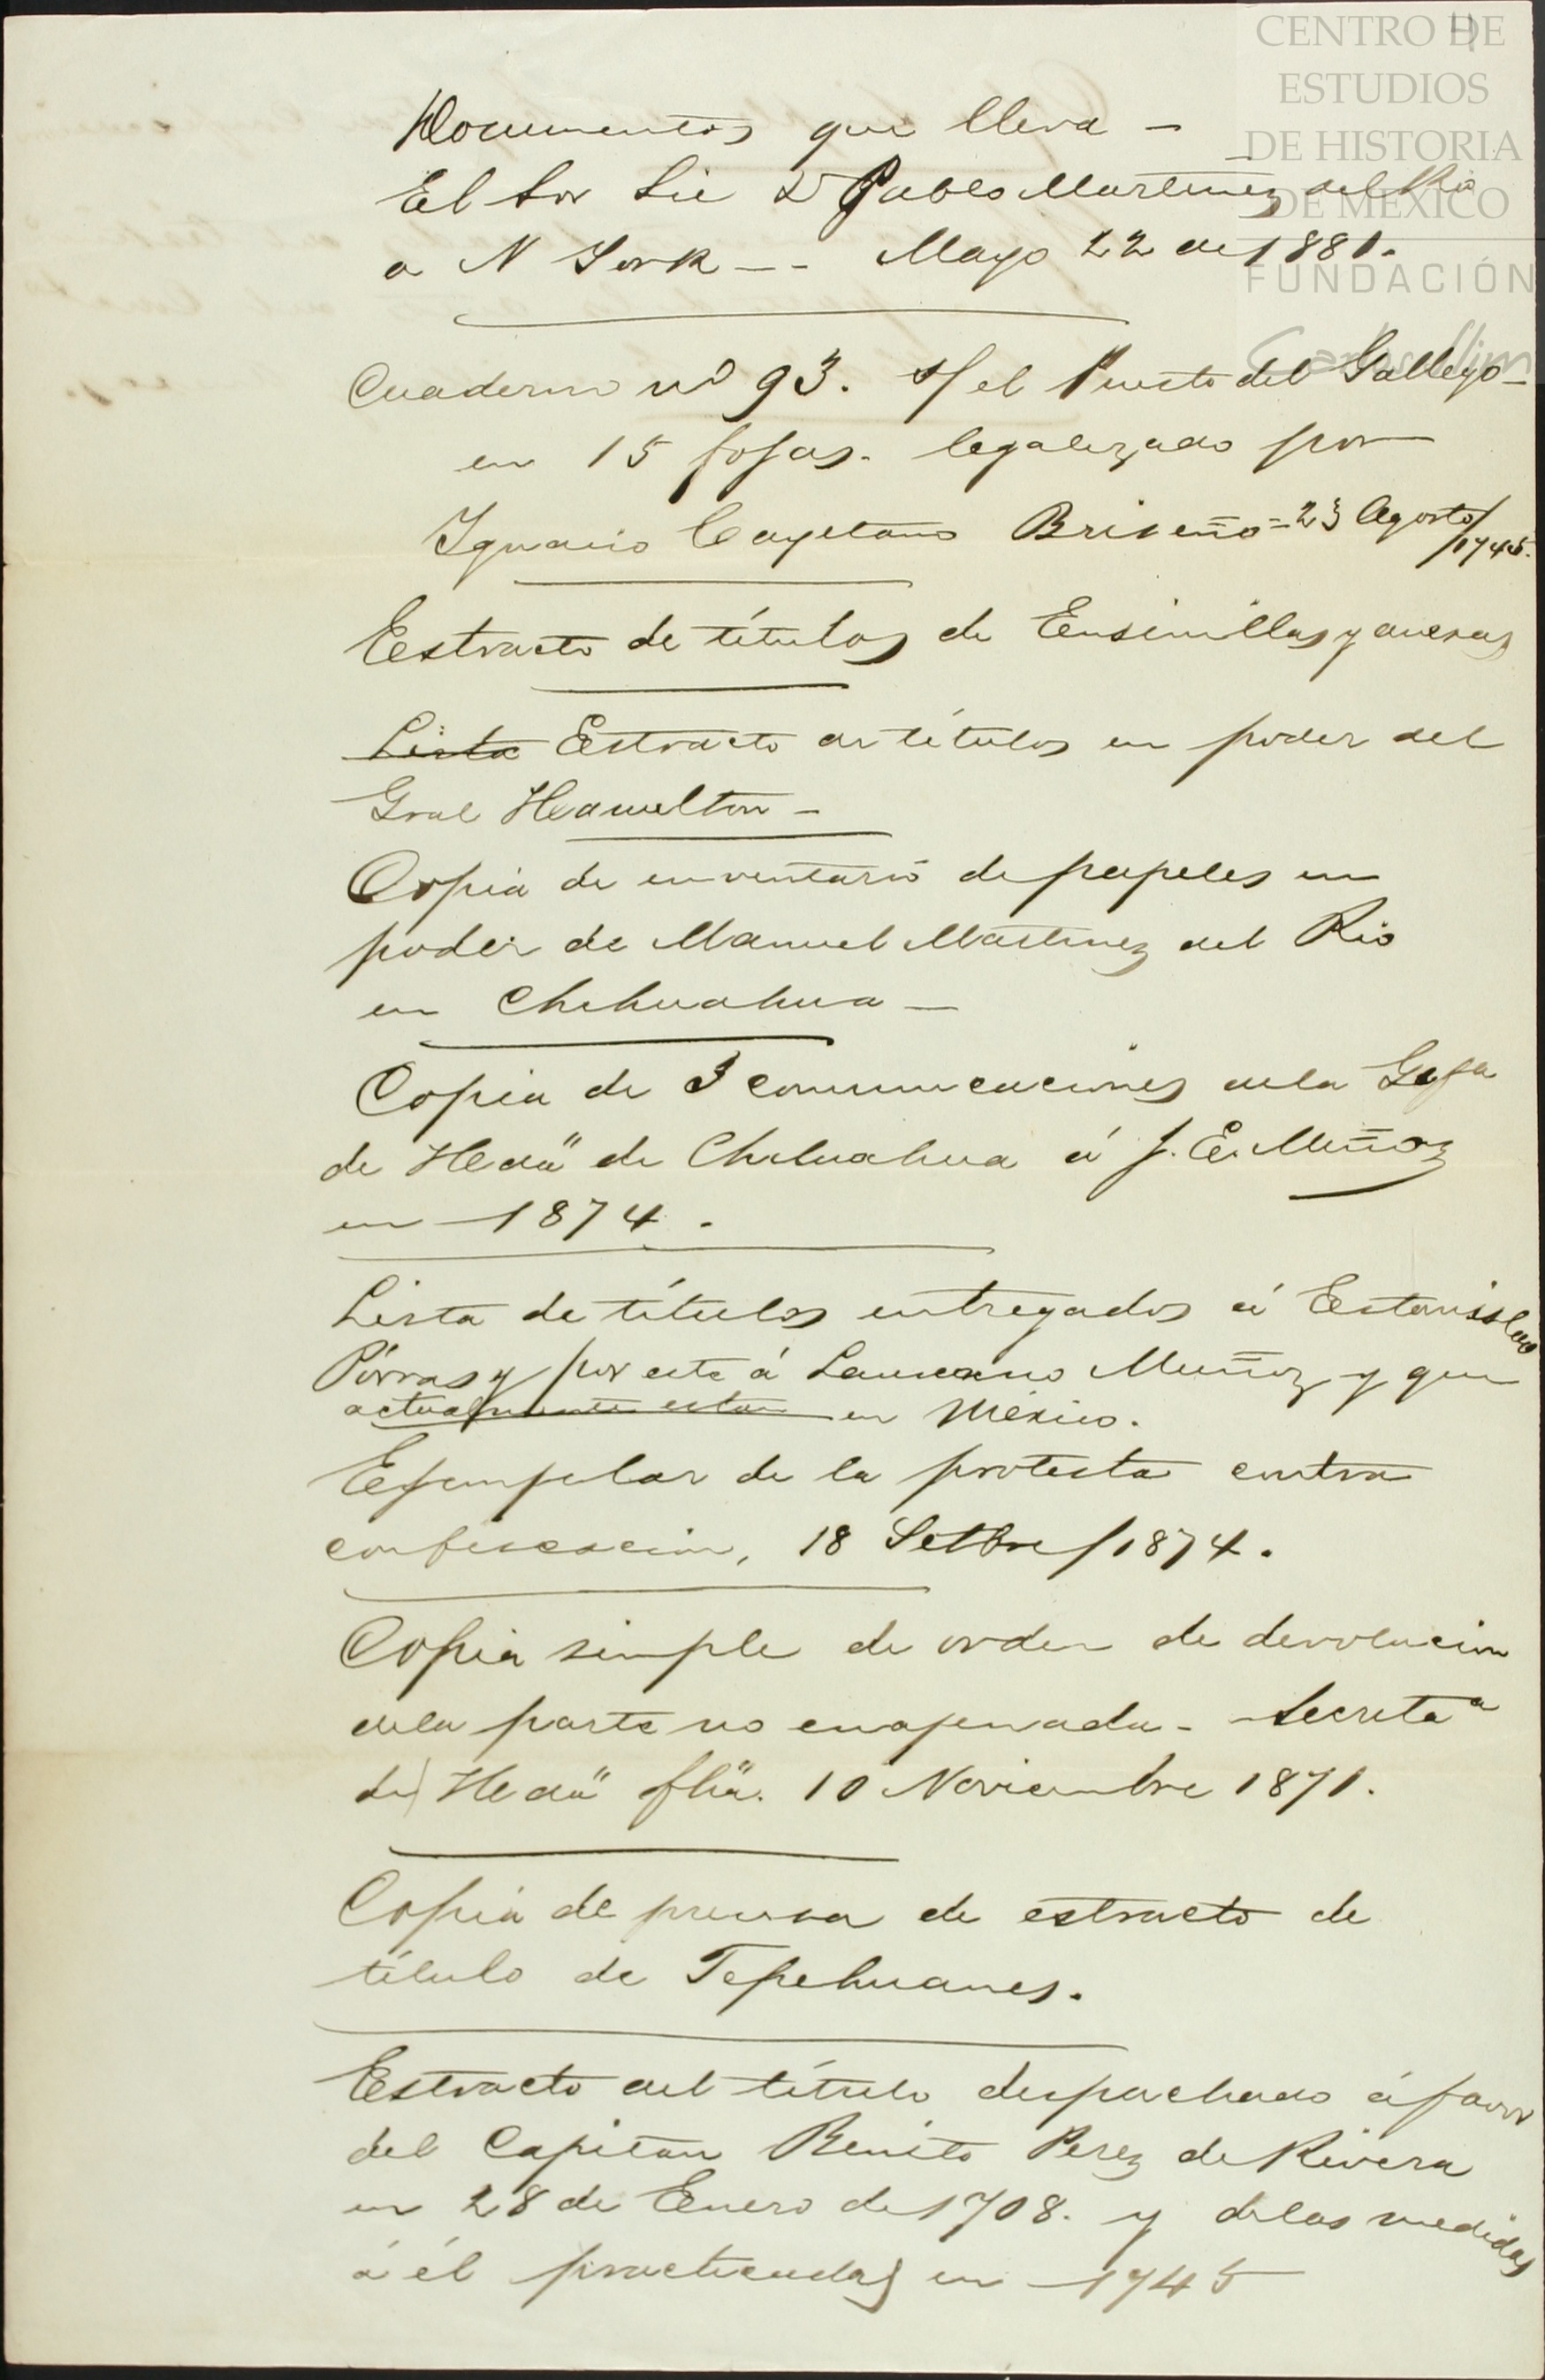 Documentos que lleva –
El Sor Lic D Pablo Martinez del Rio
a N York -- Mayo 22 de 1881.
Cuaderno nº 93. s/ el Puesto del Gallego –
en 15 fojas. legalizado por
Ignacio Cayetano Briseño = 23 Agosto/
/1745.
Estracto de títulos de Ensinillas y anexas
Lista Estracto de títulos en poder del
Gral Hamelton –
Copia de inventario de papeles en
poder de Manuel Martinez del Rio
en Chihuahua –
Copia de 3 comunicaciones de la Gefa
de Hedaª de Chihuahua á J. E. Muñoz
en 1874.
Lista de títulos entregados á Estanislao
Pórras y por este á Laureano Muñoz y que
actualmente estan en México.
Ejemplar de la protesta contra
confiscacion, 18 Setbre/1874.
Copia simple de orden de devolucion
de la parte no enajenada. – Secretaª
de Hedaª fhª. 10 Noviembre 1871.
Copia de prensa de estracto de
título de Tepehuanes.
Estracto del título despachado á favor
del Capitan Benito Perez de Rivera
en 28 de Enero de 1708. y de las medidas
á él practicadas en 1745
CENTRO DE
ESTUDIOS
DE HISTORIA
DE MÉXICO
FUNDACIÓN
Carlos Slim